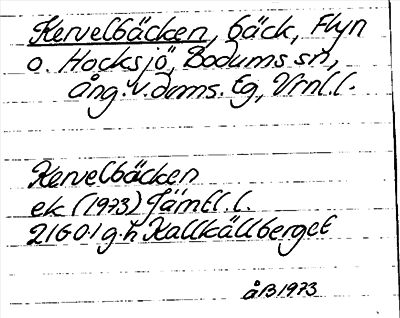 Kervelbäcken, bäck, Flyn
o. Hocksjö, Bodums sn,
Ång. v. dms. tg, Vrnl. l.
Kervelbäcken
ek (1973) Jämtl. l.
2160.1 g.h Kallkällberget
ÅB 1973